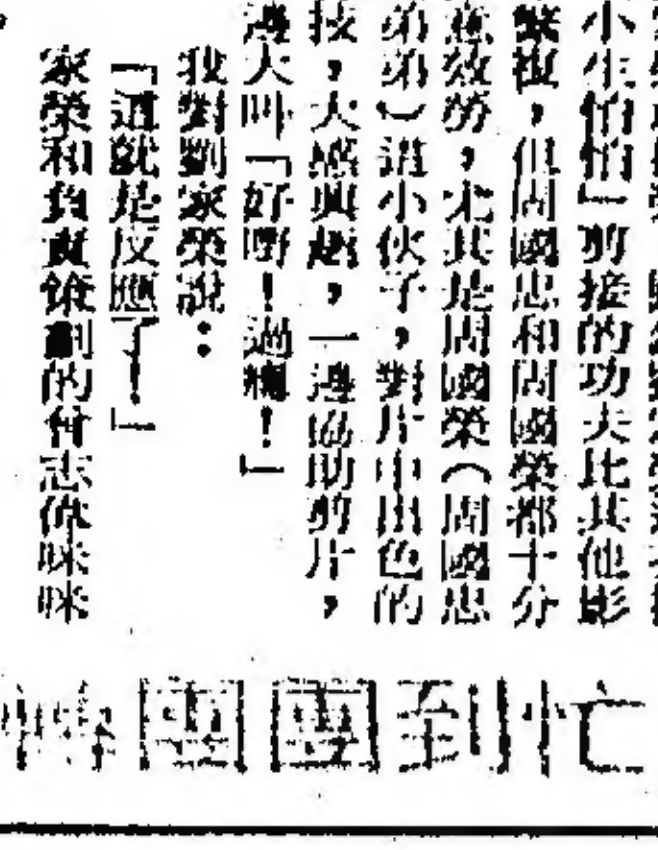 小生怕怕」剪接的功夫比其他影
繁復，但周國忠和周國榮都十分
意效勞，尤其是周國榮（周國忠
弟弟）這小伙子，對片中出色的
技，大感興趣，一邊協助剪片，
邊大叫「好嘢！過癮！」
我對劉家榮說：
「這就是反應了！」
家榮和負責策劃的曾志偉咪咪
忙到團團轉